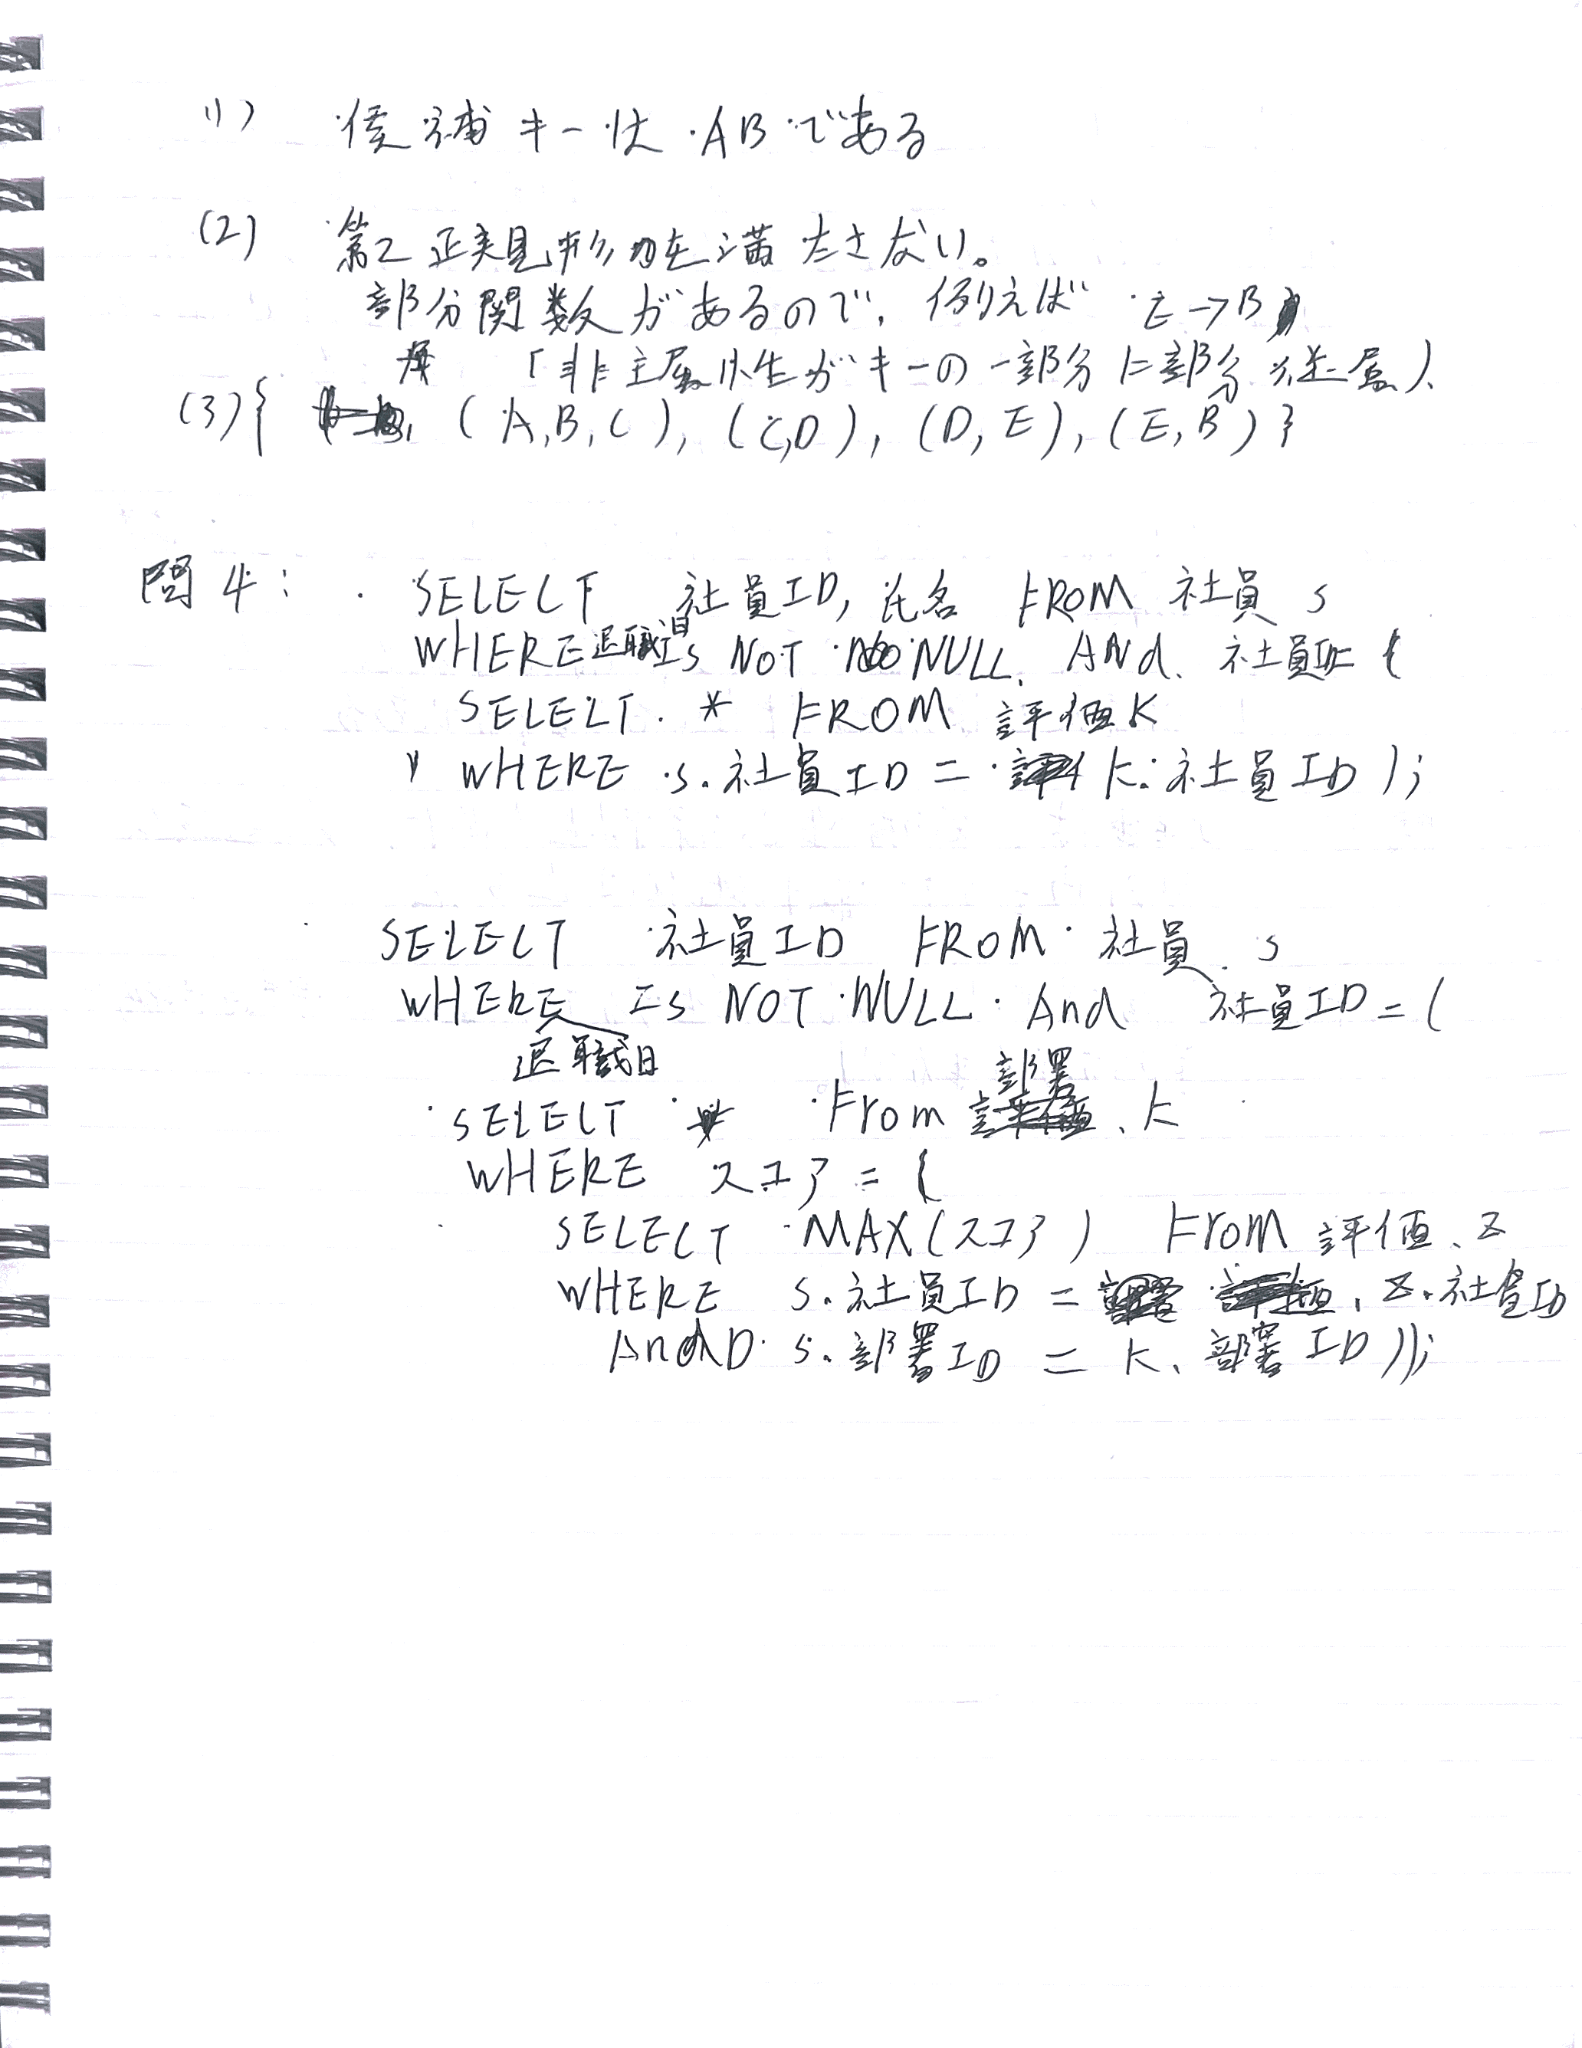 (1) 候補キーは ABである
(2) 第2正規形を満たさない。
部分関数があるので、例えば E→B
「非主属性がキーの一部分に部分従属)、
(3){ (A,B,C), (C,D), (D,E), (E,B) }
問4: SELECT 社員ID, 氏名 FROM 社員 s
WHERE 退職日 Is NOT NULL AND 社員ID= (
SELECT * FROM 評価 K
WHERE s.社員ID = K.社員ID );
SELECT 社員ID FROM 社員 s
WHERE 退職日 Is NOT NULL And 社員ID = (
SELECT * From 部署 K
WHERE スコア = (
SELECT MAX(スコア) From 評価 Z
WHERE s.社員ID = Z.社員ID
AND s.部署ID = K.部署ID ));